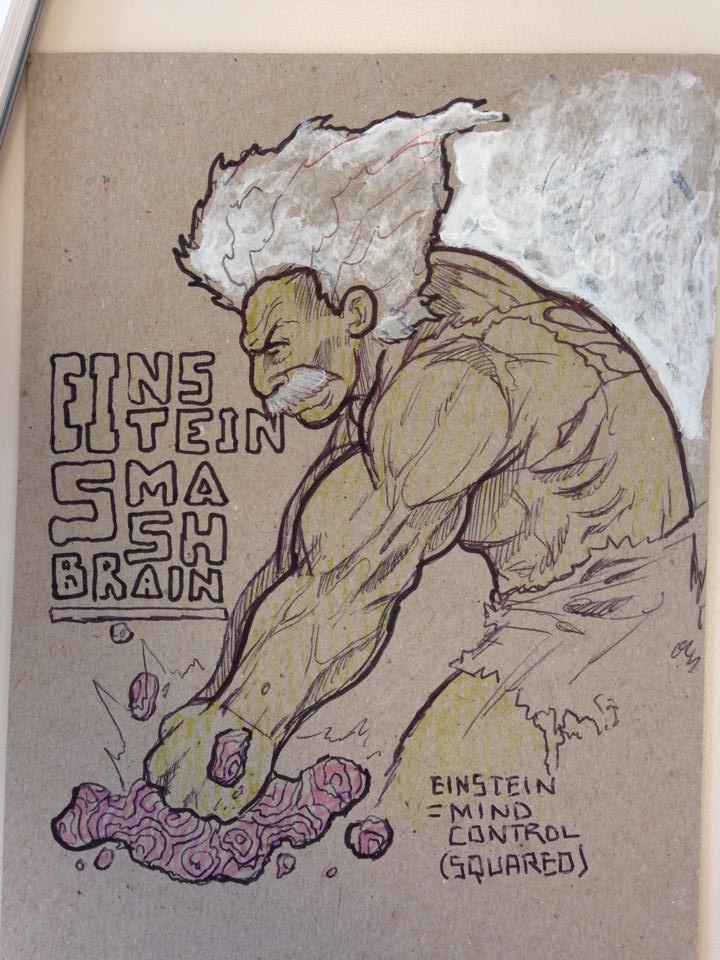 EINS
TEIN
SMA
SH
BRAIN
EINSTEIN
= MIND
CONTROL
(SQUARED)